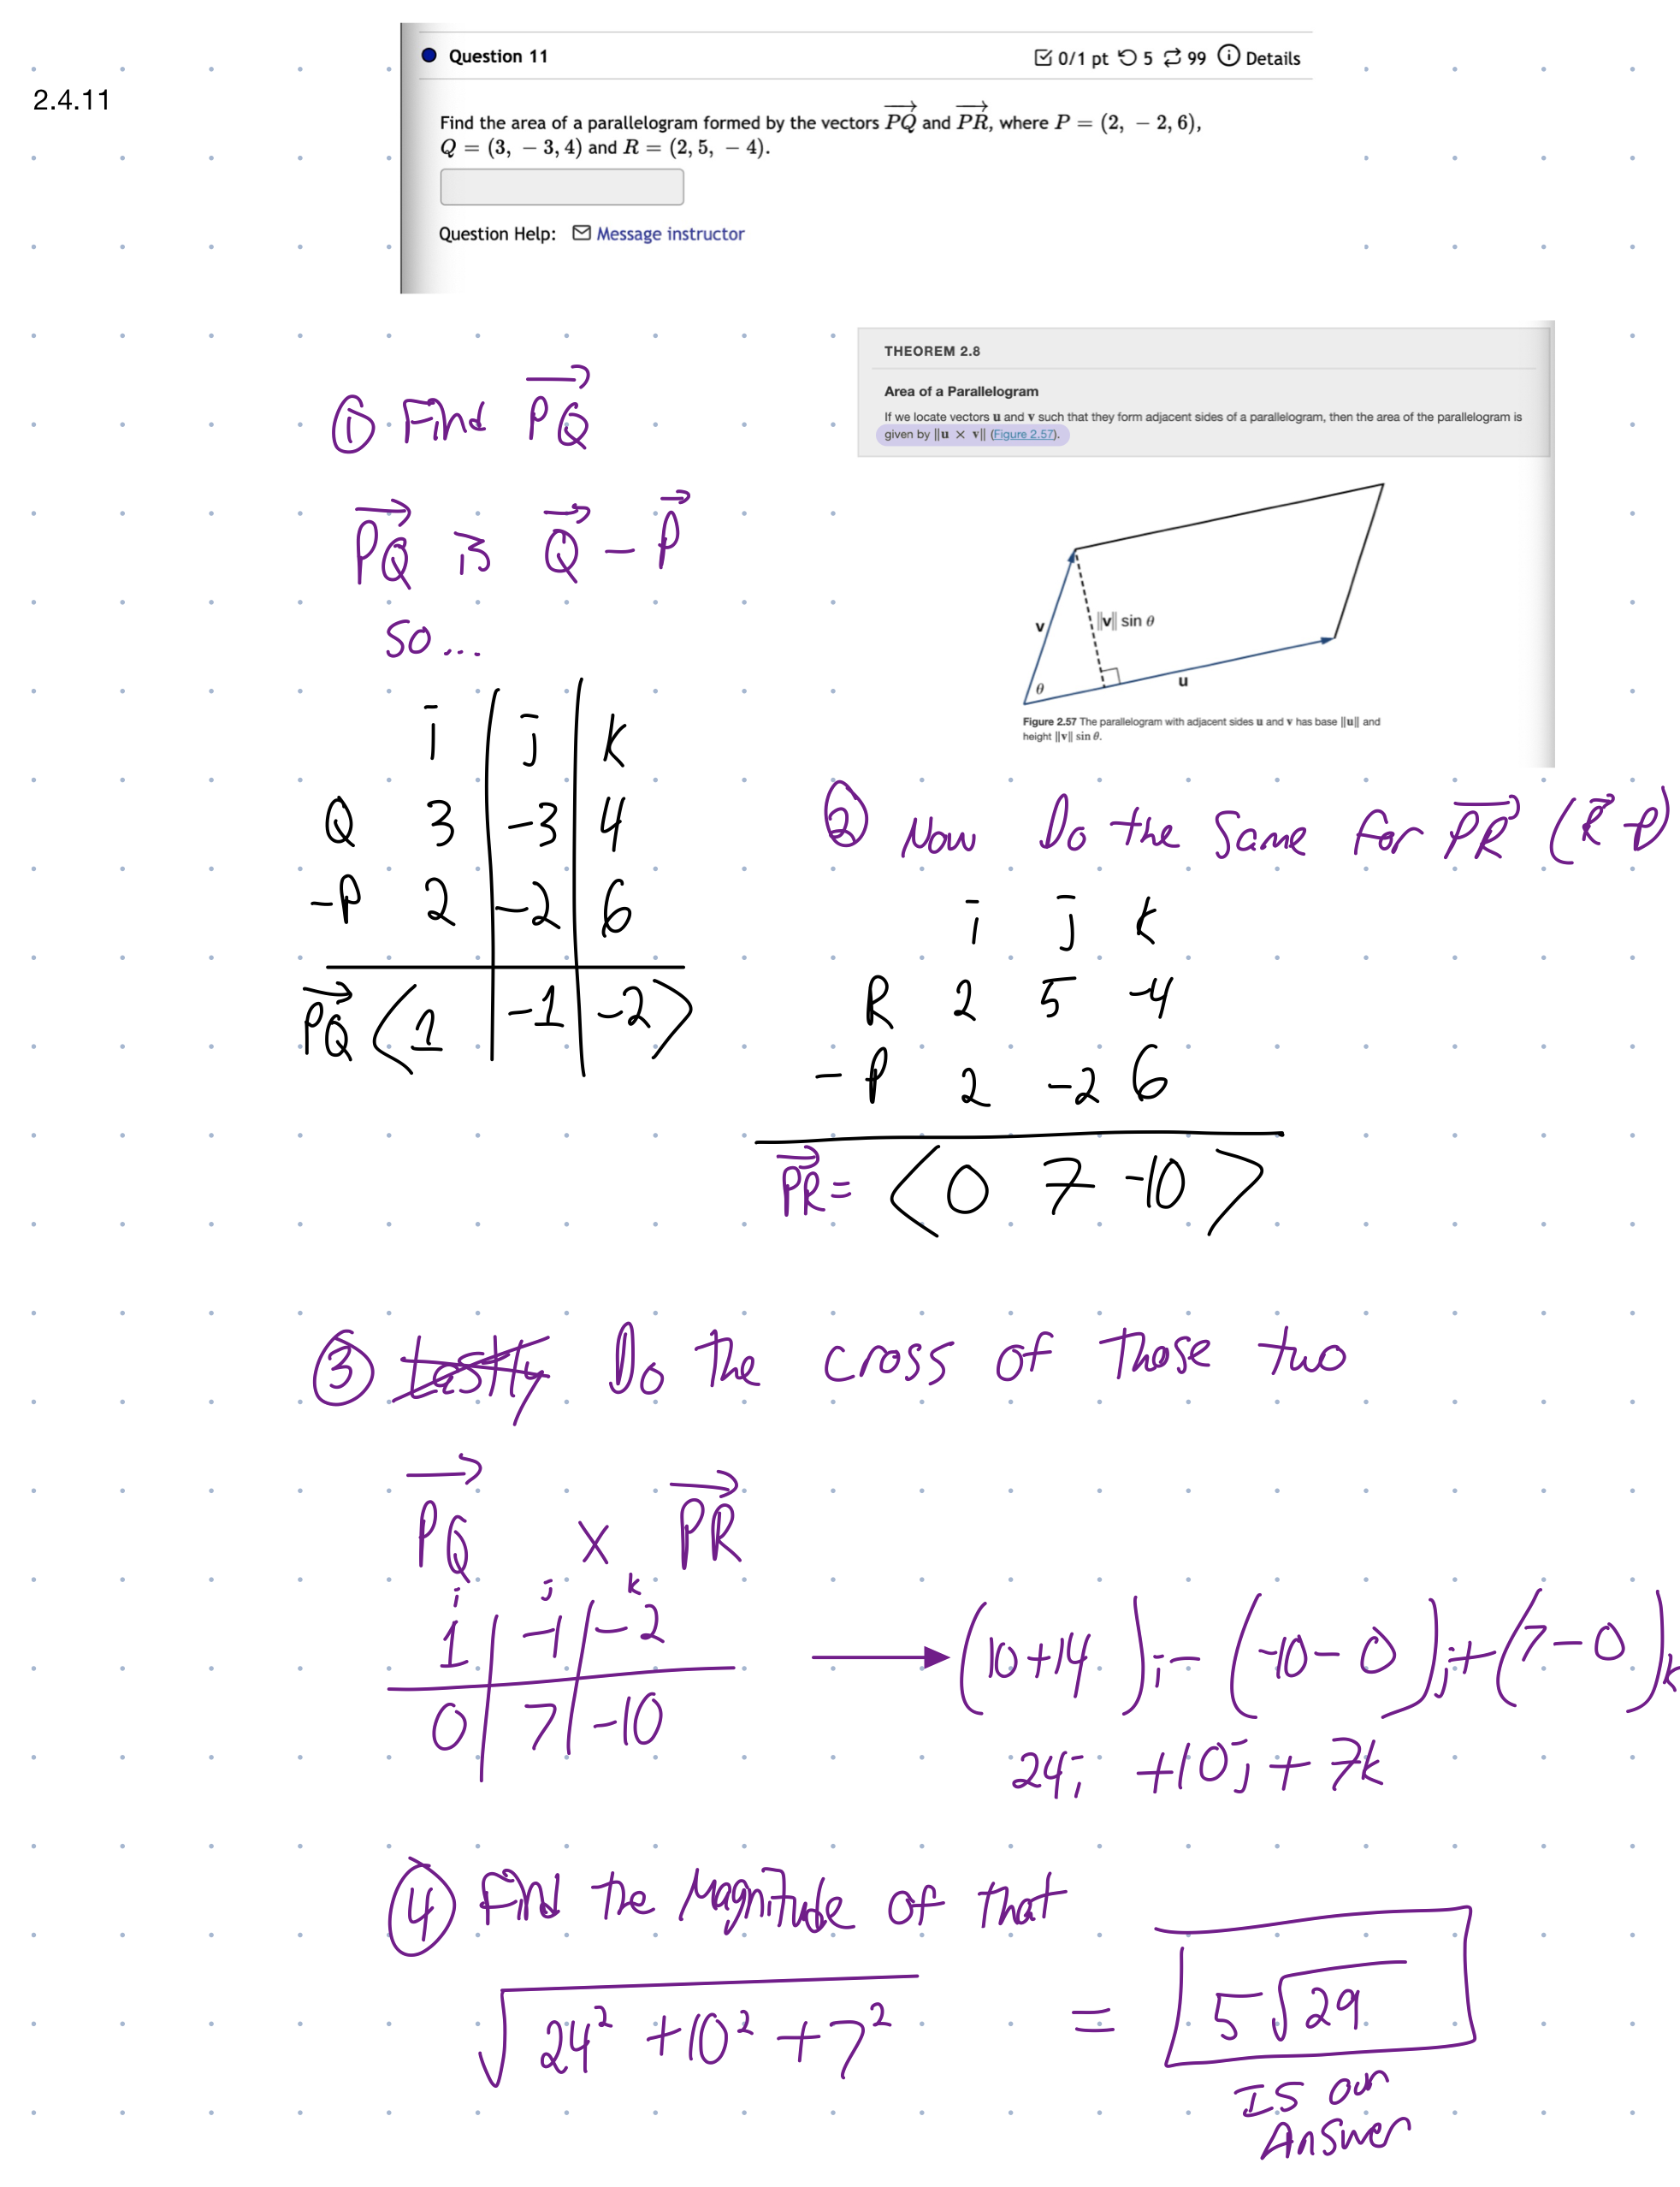 2.4.11
Question 11
0/1 pt 5 99 Details
Find the area of a parallelogram formed by the vectors PQ⃗ and PR⃗, where P = (2, − 2, 6),
Q = (3, − 3, 4) and R = (2, 5, − 4).
Question Help: Message instructor
THEOREM 2.8
Area of a Parallelogram
If we locate vectors u and v such that they form adjacent sides of a parallelogram, then the area of the parallelogram is
given by ||u × v|| (Figure 2.57).
v
||v|| sin θ
θ
u
Figure 2.57 The parallelogram with adjacent sides u and v has base ||u|| and
height ||v|| sin θ.
① Find PQ⃗
PQ⃗ is Q⃗ − P⃗
so...
i j k
Q 3 −3 4
−P 2 −2 6
PQ⃗ ⟨1 −1 −2⟩
② Now Do the Same for PR⃗ (R⃗ −P)
i j k
R 2 5 −4
− P 2 −2 6
PR⃗ = ⟨0 7 −10⟩
③ Lastly Do the cross of those two
PQ⃗ × PR⃗
i j k
1 −1 −2
0 7 −10
(10+14)i − (−10−0)j + (7−0)k
24i +10j + 7k
④ Find the Magnitude of that
√(24² +10² +7²) = 5√29
Is our
Answer